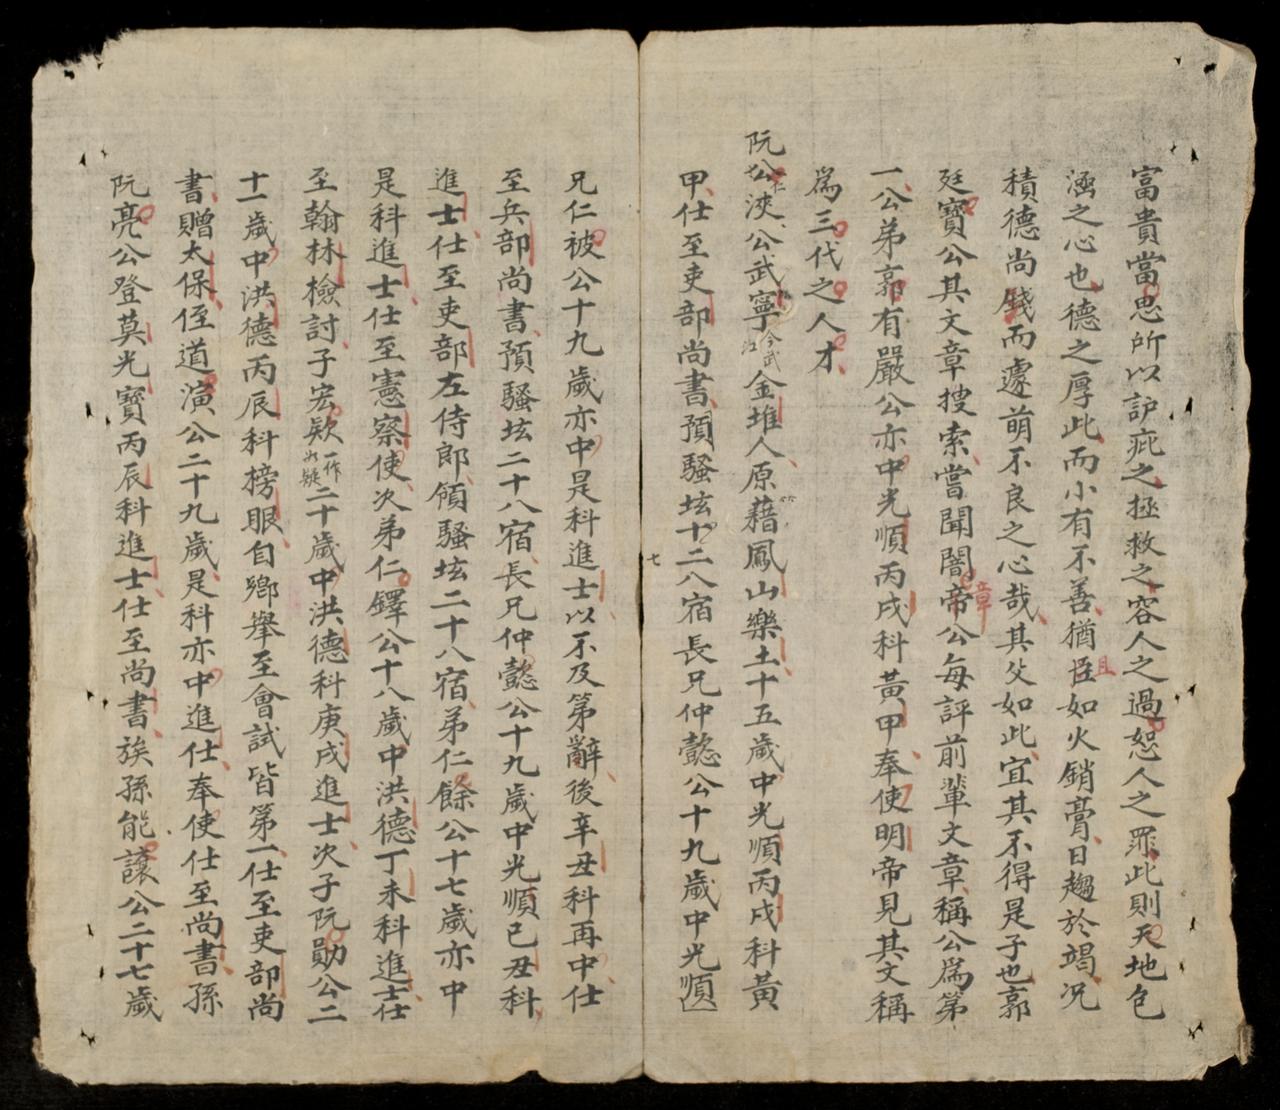 富貴當思所以護疵之拯救之容人之過恕人之罪此則天地包
涵之心也德之厚此而小有不善猶且如火銷膏日趨於竭况
積德尚錢而遽萌不良之心哉其父如此宜其不得是子也郭
廷寶公其文章搜索嘗聞闇章帝公每評前輩文章稱公爲第
一公弟郭有嚴公亦中光順丙戌科黃甲奉使明帝見其文稱
爲三代之人才
阮公仁浹公武寧今武江金堆人原藉鳳山樂土十五歲中光順丙戌科黃
甲仕至吏部尚書預騷坛十二八宿長兄仲懿公十九歲中光順
七
兄仁被公十九歲亦中是科進士以不及第辭後辛丑科再中仕
至兵部尚書預騷坛二十八宿長兄仲懿公十九歲中光順己丑科
進士仕至吏部左侍郎領騷坛二十八宿弟仁餘公十七歲亦中
是科進士仕至憲察使次弟仁鐸公十八歲中洪德丁未科進士仕
至翰林檢討子宏欵一作如疑二十歲中洪德科庚戌進士次子阮勛公二
十一歲中洪德丙辰科榜眼自鄉舉至會試皆第一仕至吏部尚
書贈太保侄道演公二十九歲是科亦中進仕奉使仕至尚書孫
阮亮公登莫光寶丙辰科進士仕至尚書族孫能讓公二十七歲